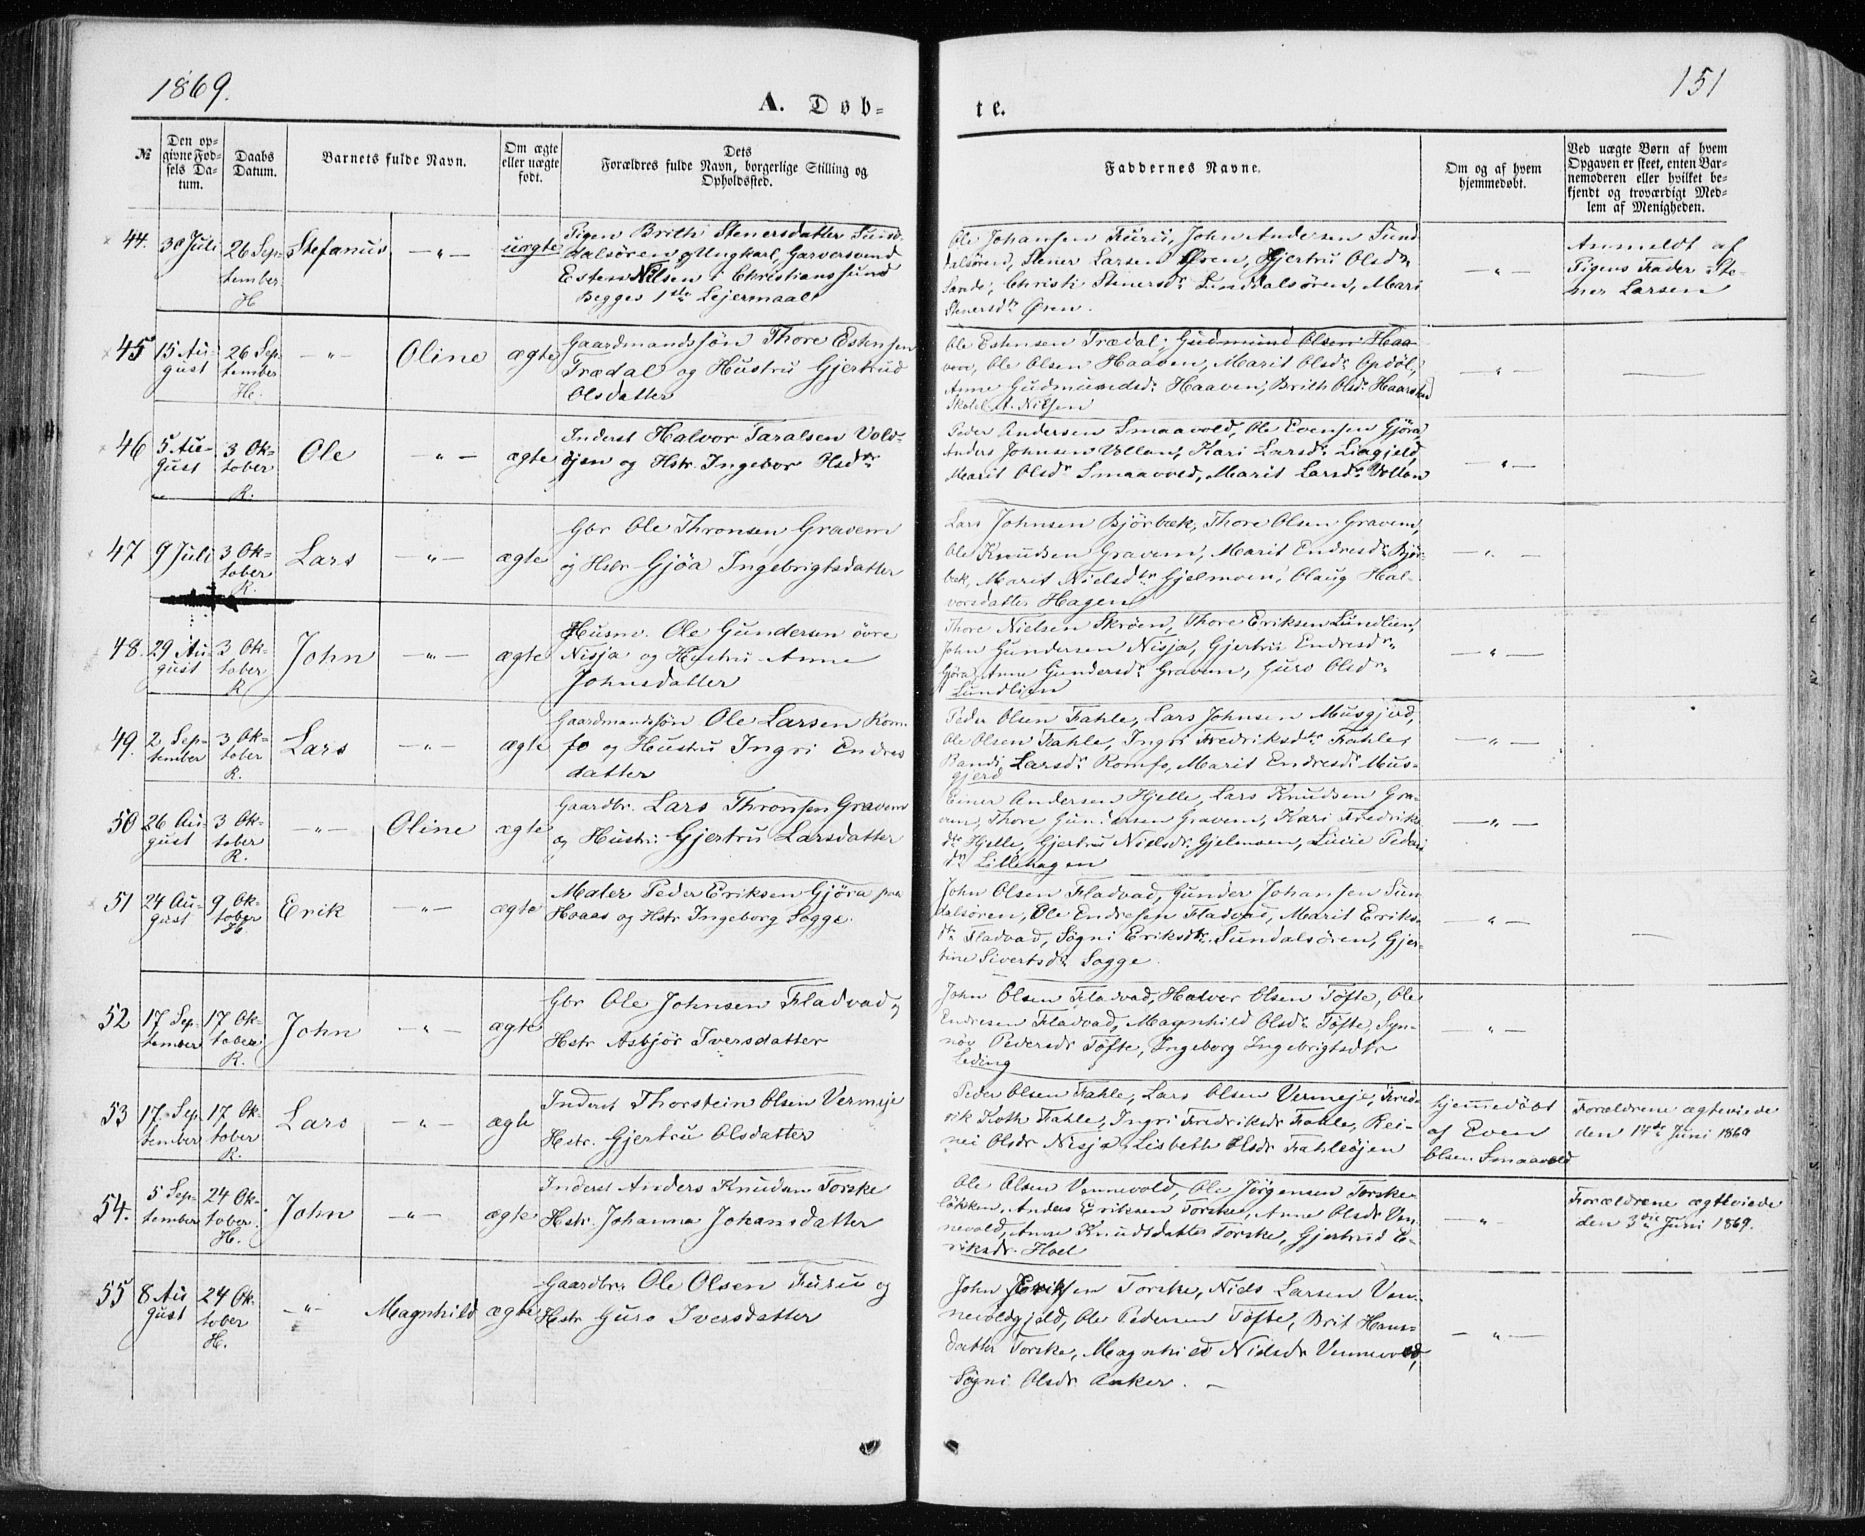 1869.
151
A. Døb-
te.
№
Den op-
givne Fød-
sels Da-
tum.
Daabs
Datum.
Barnets fulde Navn.
Om ægte
eller uægte
født.
Dets
Forældres fulde Navn, borgerlige Stilling og
Opholdssted.
Faddernes Navne.
Om og af hvem
hjemmedøbt.
Ved uægte Børn af hvem
Opgaven er skeet, enten Bar-
nemoderen eller hvilket be-
kjendt og troværdigt Med-
lem af Menigheden.
44.
30 Juli
26 Sep-
tember
H
Stefanus
uægte
Pigen Brith Stenersdatter Sund-
dalsøren og Ungkarl, Garversvend
Esten Nilsen i Christianssund
Begges 1ste Lejermaal
Ole Johansen Furu, John Andersen Sund
dalsøren, Stener Larsen Øren, Gjertru Olsdr
Sande, Christi Stenersdr Sunddalsøren, Mari
Stenersdr Øren.
Anmeldt af
Pigens Fader Ste-
ner Larsen
45
15 Au-
gust
26 Sep-
tember
H.
Oline
ægte
Gaardmandssøn Thore Estensen
Trædal og Hustru Gjertrud
Olsdatter
Ole Estensen Trædal, Gudmund Olsen Haa
ven, Ole Olsen Haaven, Marit Olsdr Opdøl,
Anne Gudmundsdr Haaven, Brith Olsdr Haarstad
Skolel. A. Nilsen
46
5 Au-
gust
3 Ok-
tober
R.
Ole
ægte
Inderst Halvor Taralsen Vold-
øjen og Hstr. Ingebor Olsdtr
Peder Andersen Smaavold, Ole Evensen Gjøra,
Anders Johnsen Vollan, Kari Larsdr Liagjeld,
Marit Olsdr Smaavold, Marit Larsdr Vollan
47
9 Juli
3 Ok-
tober
R.
Lars
ægte
Gbr Ole Thronsen Gravem
og Hstr Gjøa Ingebrigtsdatter
Lars Johnsen Bjørbæk, Thore Olsen Gravem,
Ole Knudsen Gravem, Marit Endresdr Bjør-
bæk, Marit Nielsdtr Gjelmoen, Olaug Hal-
vorsdatter Hagen
48.
29 Au-
gust
3 Ok-
tober
R
John
ægte
Husm. Ole Gundersen øvre
Nisja og Hustru Anne
Johnsdatter
Thore Nielsen Skrøen, Thore Eriksen Lundlien,
John Gundersen Nisja, Gjertru Endresdr
Gjøra, Anne Gundersdr Gravem, Guro Olsdr
Lundlien
49.
2 Sep-
tember
3 Ok-
tober
R.
Lars
ægte
Gaardmandssøn Ole Larsen Rom-
fo og Hustru Ingri Endres
datter
Peder Olsen Fahle, Lars Johnsen Musgjerd,
Ole Olsen Fahle, Ingri Fredriksdtr Fahle,
Randi Larsdr Romfo, Marit Endresdr Mus-
gjerd
50
26 Au-
gust
3 Ok-
tober
R.
Oline
ægte
Gaardbr. Lars Thronsen Gravem
og Hustr. Gjertru Larsdatter
Einer Andersen Hjelle, Lars Knudsen Gra-
vem, Thore Gundersen Gravem, Kari Fredriks
dtr Hjelle, Gjertru Nielsdr Gjelmoen, Lucie Peders
dr Lillehagen
51
24 Au-
gust
9 Ok-
tober
H
Erik
ægte
Maler Peder Eriksen Gjøra paa
Hoaas og Hstr Ingeborg Sogge.
John Olsen Fladvad, Gunder Johansen Sun
dalsøren, Ole Endresen Fladvad, Marit Eriks-
dtr Fladvad, Søgni Eriksdtr Sundalsøren, Gjer-
tine Sivertsdr Sogge.
52
17 Sep-
tember
17 Ok-
tober
R.
John
ægte
Gbr Ole Johnsen Fladvad og
Hstr Asbjør Iversdatter
John Olsen Fladvad, Halvor Olsen Tøfte, Ole
Endresen Fladvad, Magnhild Olsdr Tøfte, Syn-
nøv Pedersdr Tøfte, Ingeborg Ingebrigtsdtr
Leding
53
17 Sep
tember
17 Ok-
tober
R.
Lars
ægte
Inderst Thorstein Olsen Vermeje
Hstr. Gjertru Olsdatter
Peder Olsen Fahle, Lars Olsen Vermeje, Fred-
rik Koth Fahle, Ingri Fredriksdr Fahle, Rei-
nei Olsdr Nisja, Lisbeth Olsdr Fahleøjen
hjemmedøbt
af Even
Olsen Smaavold
Forældrene ægteviede
den 17de Juni 1869
54.
5 Sep-
tember
24 Ok-
tober.
H.
John
ægte
Inderst Anders Knudsen Torske
Hstr. Johanna Johansdatter
Ole Olsen Vennevold, Ole Jørgensen Torske-
løkken, Anders Eriksen Torske, Anne Olsdr Ven-
nevold, Anne Knudsdatter Torske, Gjertrud E-
riksdr Hoel
Forældrene ægteviede
den 3die Juni 1869.
55
8 Au
gust
24 Ok-
tober
H.
Magnhild
ægte
Gaardbr. Ole Olsen Furu og
Hstr Guro Iversdatter
John Eriksen Torske, Niels Larsen Ven-
nevoldgjeld, Ole Pedersen Tøfte, Brit Hans-
datter Torske, Magnhild Nielsdr Vennevold,
Søgni Olsdr Anker.